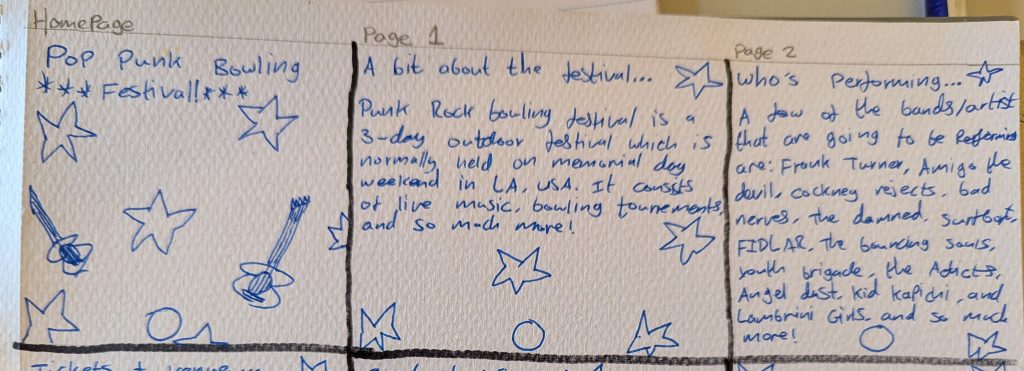 HomePage
Pop Punk Bowling
*** Festival!***
Page 1
A bit about the festival...
Punk Rock bowling festival is a
3-day outdoor festival which is
normally held on memorial day
weekend in LA, USA. It consists
of live music, bowling tournements,
and so much more!
Page 2
Who's Performing...
A few of the bands/artist
that are going to be Performing
are: Frank Turner, Amigo the
devil, cockney rejects, bad
nerves, the damned, Surfbort,
FIDLAR, The bouncing souls,
youth brigade, the Adicts,
Angel dust, kid kapichi, and
Lambrini Girls, and so much
more!
Tickets +